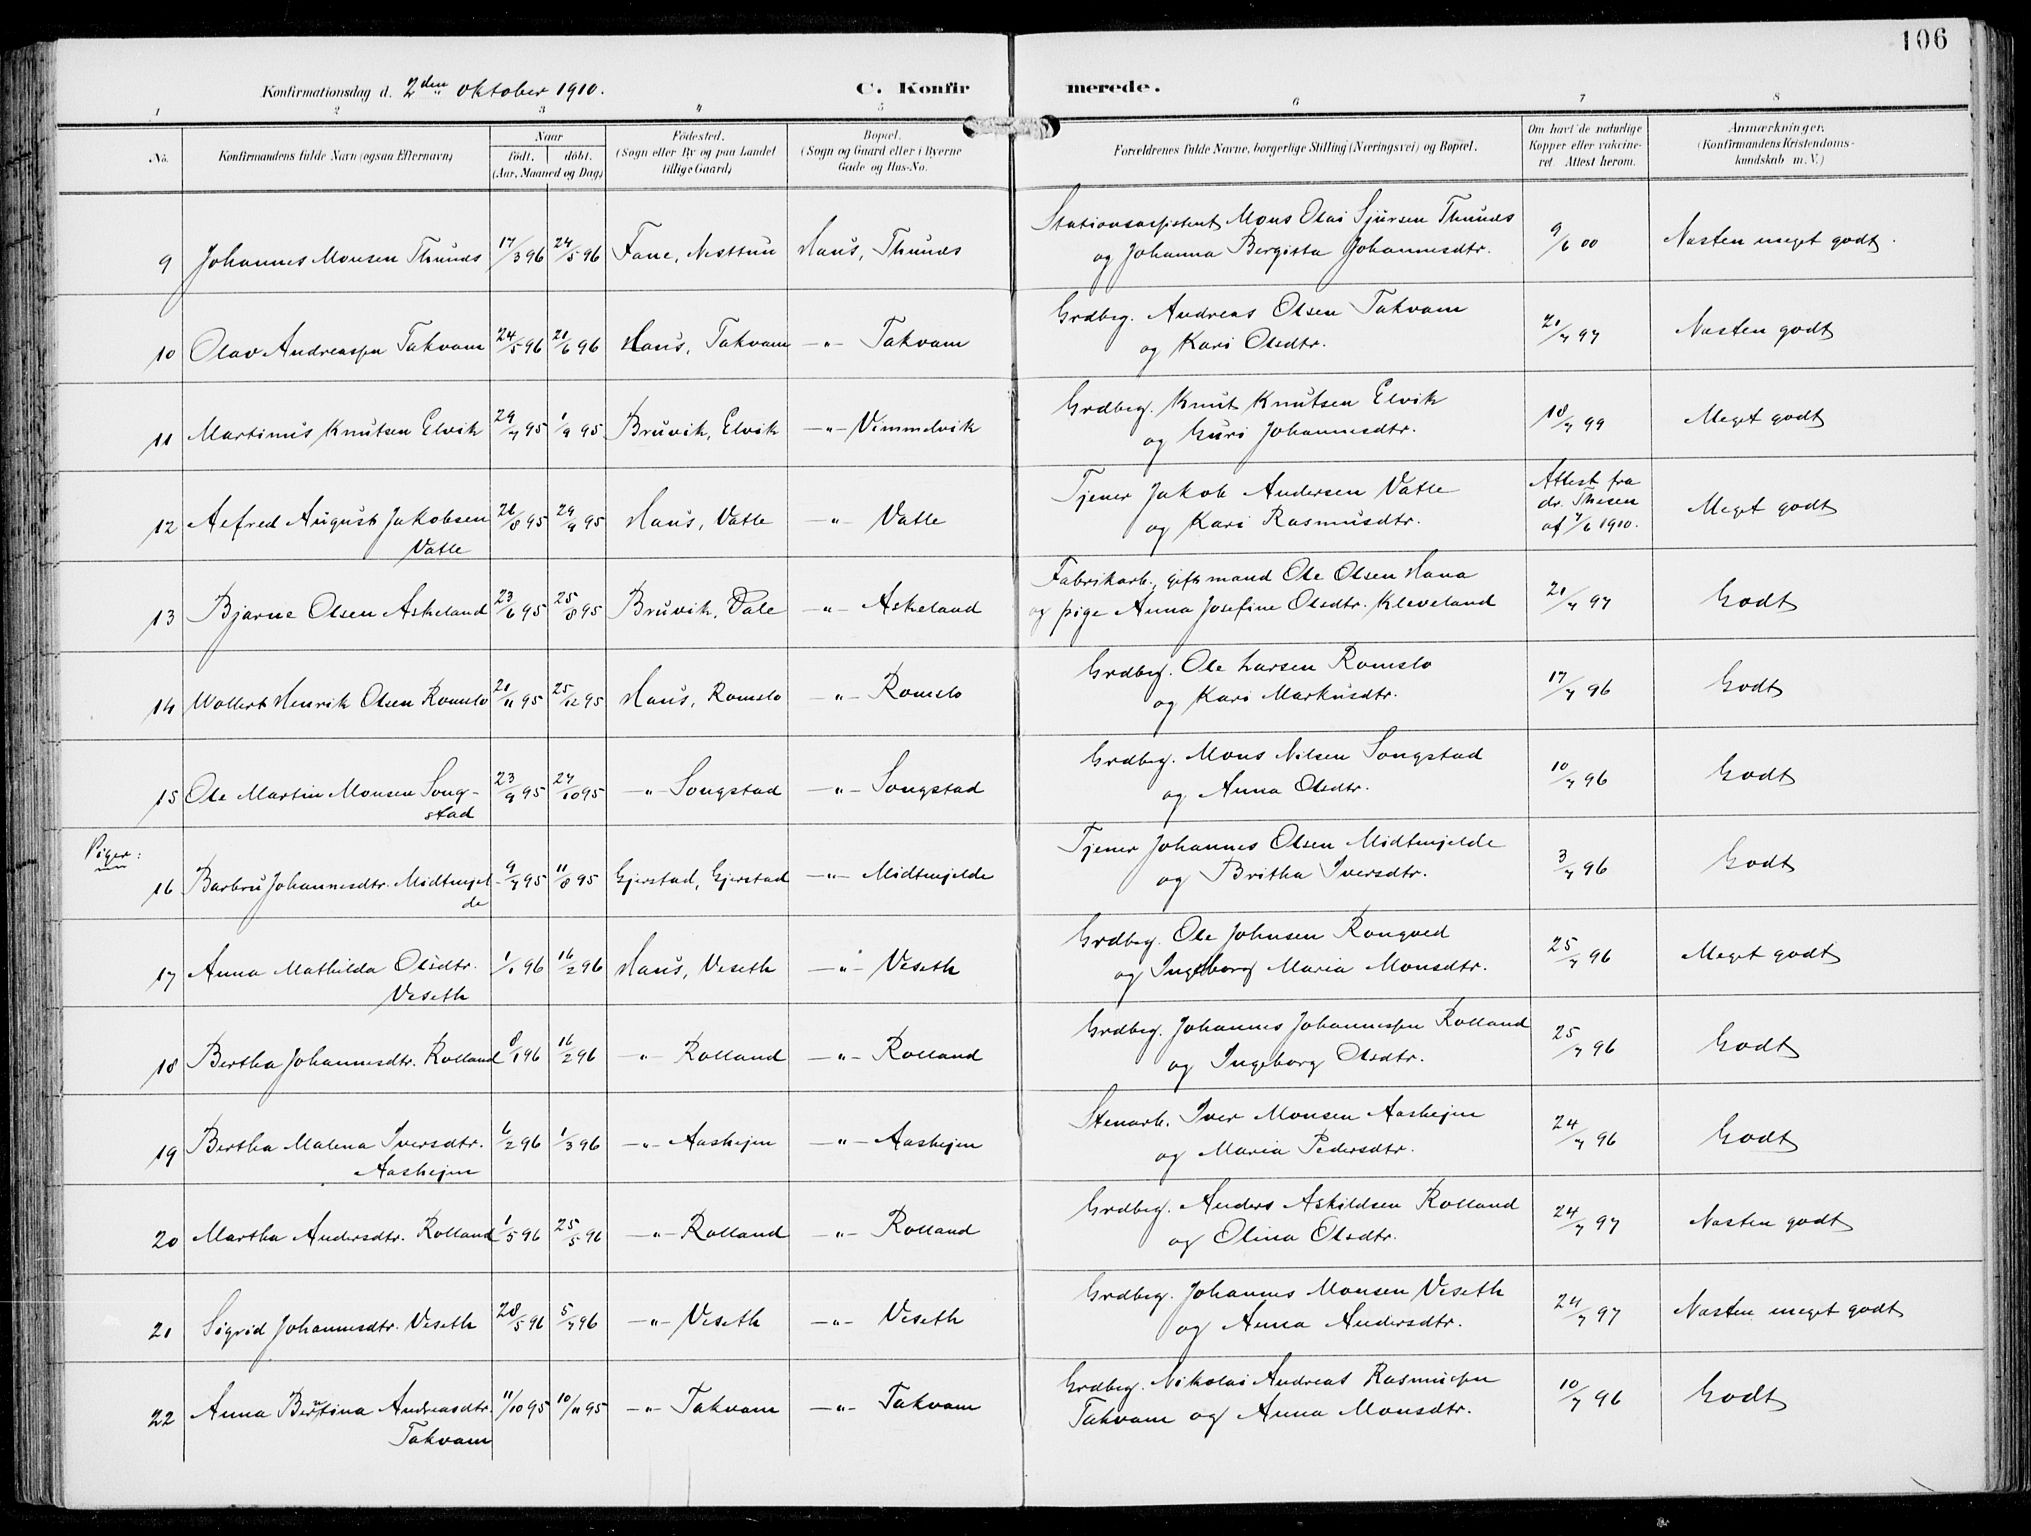 106
Konfirmationsdag d. 2den oktober 1910. C. Konfir merede.
1 2 3 4 5 6 7 8
No. Konfirmandens fulde Navn (ogsaa Efternavn) Naar født. døbt. (Aar, Maaned og Dag) Fødested. (Sogn eller By og paa Landet tillige Gaard) Bopæl. (Sogn og Gaard eller i Byerne Gade og Hus-No. Forældrenes fulde Navne, borgerlige Stilling (Næringsvei) og Bopæl. Om havt de naturlige Kopper eller vakcineret. Attest herom. Anmærkninger. (Konfirmandens Kristendomskundskab m. V.)
9 Johannes Monsen Thunes 17/3 96 24/5 96 Fane, Nesttun Haus, Thunes Stationsassistent Mons Olai Sjursen Thunes
og Johanna Bergitta Johannesdtr. 9/6 00 Næsten meget godt.
10 Olav Andreassen Takvam 24/5 96 21/6 96 Haus, Takvam -"- Takvam Grdbrg. Andreas Olsen Takvam
og Kari Olsdtr. 21/7 97 Næsten godt
11 Martinus Knutsen Elvik 29/7 95 1/9 95 Bruvik, Elvik -"- Vimmelvik Grdbrg. Knut Knutsen Elvik
og Guri Johannesdtr. 18/7 99 Meget godt
12 Alfred August Jakobsen 21/8 95 29/9 95 Haus, Vatle -"- Vatle Tjener Jakob Andersen Vatle
Vatle og Kari Rasmusdtr. Attest fra
dr. Thesen
af 7/6 1910. Meget godt
13 Bjarne Olsen Askeland 23/6 95 25/8 95 Bruvik, Vale -"- Askeland Fabrikarb., gift mand Ole Olsen Hana
og pige Anna Josefine Olsdtr. Kleveland 21/7 97 Godt
14 Wollert Henrik Olsen Romslo 21/11 95 25/12 95 Haus, Romslo -"- Romslo Grdbrg. Ole Larsen Romslo
og Kari Markusdtr. 17/7 96 Godt
15 Ole Martin Monsen Song- 23/9 95 27/10 95 -"- Songstad -"- Songstad Grdbrg. Mons Nilsen Songstad
stad og Anna Olsdtr. 10/7 96 Godt
Piger:
16 Barbru Johannesdtr. Midtmjel- 9/7 95 11/8 95 Gjerstad, Gjerstad -"- Midtmjelde Tjener Johannes Olsen Midtmjelde
de og Britha Iversdtr. 3/7 96 Godt
17 Anna Mathilda Olsdtr. 1/1 96 16/2 96 Haus, Veseth -"- Veseth Grdbrg. Ole Johnsen Rongved
Veseth og Ingeborg Maria Monsdtr. 25/7 96 Meget godt
18 Bertha Johannesdtr. Rolland 8/1 96 16/2 96 -"- Rolland -"- Rolland Grdbrg. Johannes Johannessen Rolland
og Ingeborg Olsdtr. 25/7 96 Godt
19 Bertha Malena Iversdtr. 6/2 96 1/3 96 -"- Aashejen -"- Aashejen Stenarb. Iver Monsen Aashejen
Aashejen og Maria Pedersdtr. 24/7 96 Godt
20 Martha Andersdtr. Rolland 1/5 96 25/5 96 -"- Rolland -"- Rolland Grdbrg. Anders Askildsen Rolland
og Olina Olsdtr. 24/7 97 Næsten godt
21 Sigrid Johannesdtr. Veseth 28/5 96 5/7 96 -"- Veseth -"- Veseth Grdbrg. Johannes Monsen Veseth
og Anna Andersdtr. 24/7 97 Næsten meget godt
22 Anna Bertina Andreasdtr. 11/10 95 10/11 95 -"- Takvam -"- Takvam Grdbrg. Nikolai Andreas Rasmussen
Takvam Takvam og Anna Monsdtr. 10/7 96 Godt